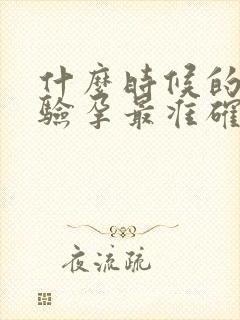 什麼時候的
驗孕最准確
夜流疏